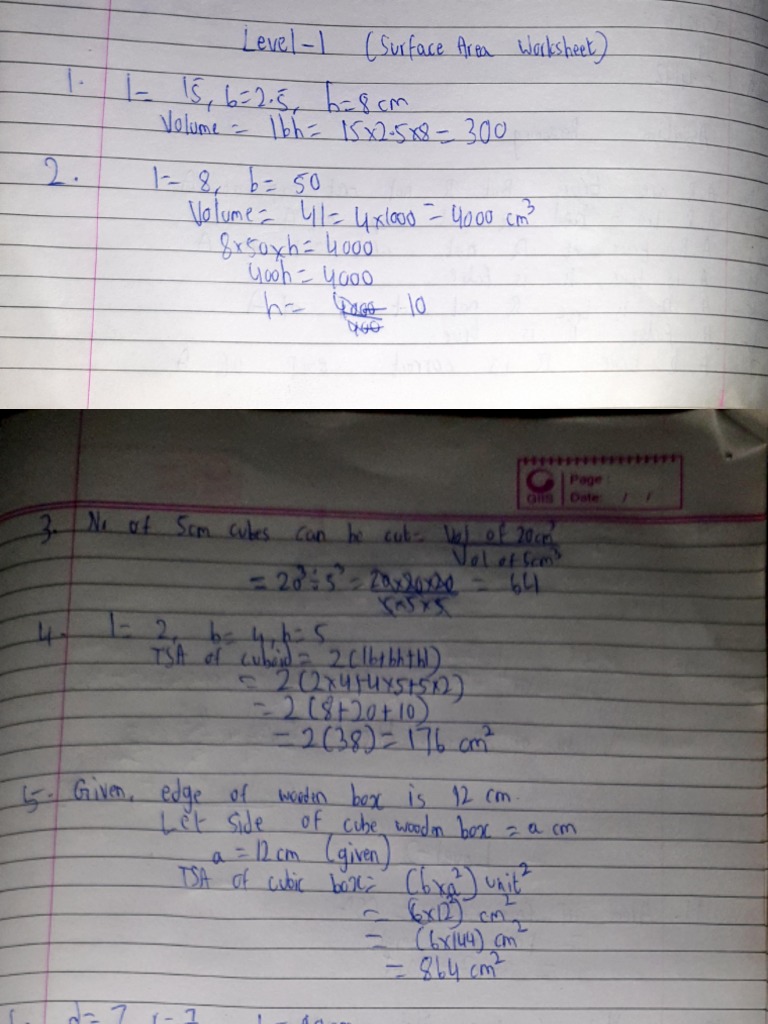 Level-1 (Surface Area Worksheet)
1. l= 15, b=2.5, h=8cm
Volume = lbh= 15x2.5x8= 300
2. l= 8, b= 50
Volume= 4l= 4x1000 = 4000 cm³
8x50xh= 4000
400h= 4000
h= 4000/400 10
GIIS Page :
Date: / /
3. No of 5cm cubes can be cut= Vol of 20cm³
Vol of 5cm³
= 20³÷5³= 20x20x20/5x5x5 = 64
4. l= 2, b= 4, h= 5
TSA of cuboid = 2(lb+bh+hl)
= 2(2x4+4x5+5x2)
= 2(8+20+10)
= 2(38)= 176 cm²
5. Given, edge of wooden box is 12 cm.
Let side of cube wooden box = a cm
a = 12cm (given)
TSA of cubic box= (6xa²) unit²
= (6x12²) cm²
= (6x144) cm²
= 864 cm²
d= 7